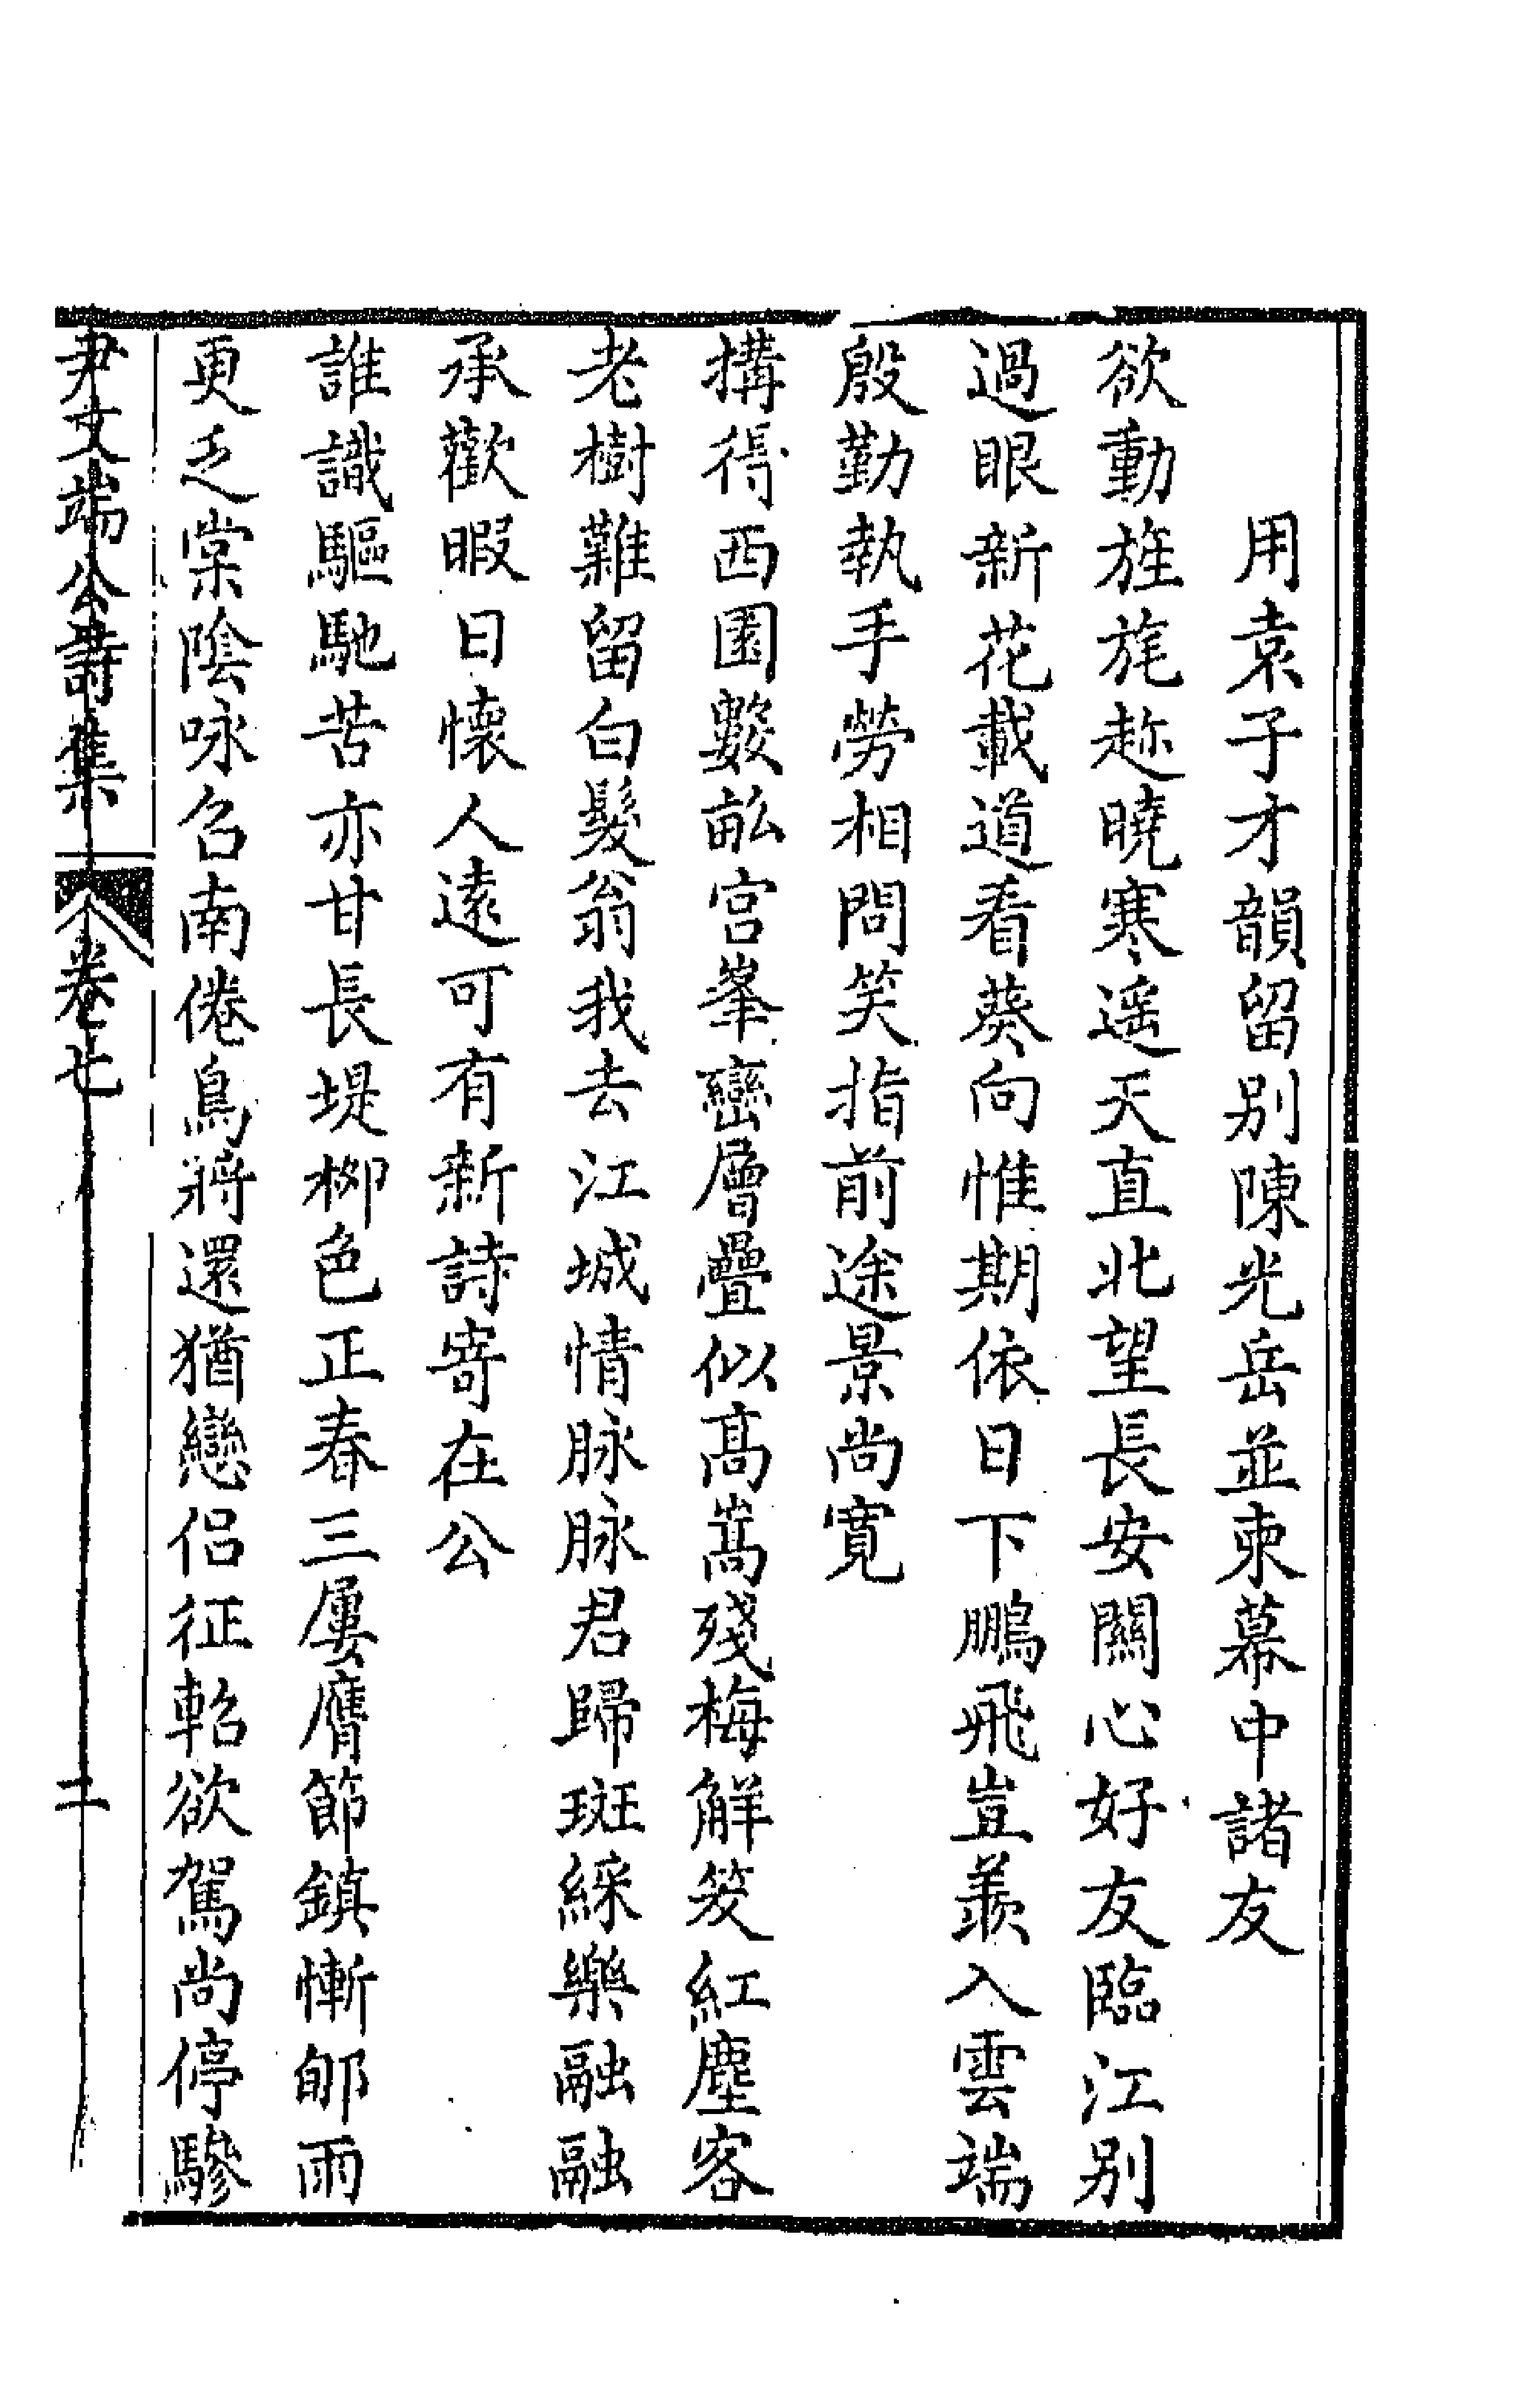 用袁子才韻留别陳光岳並柬幕中諸友
欲動旌旄趂曉寒遥天直北望長安關心好友臨江别
過眼新花載道看葵向惟期依日下鵬飛豈羨入雲端
殷勤執手勞相問笑指前途景尚寛
搆得西園數畝宫峯巒層疊似髙嵩殘梅解笑紅塵客
老樹難留白髮翁我去江城情脉脉君歸斑綵樂融融
承歡暇日懷人遠可有新詩寄在公
誰識驅馳苦亦甘長堤栁色正春三屢膺節鎮慚郇雨
更乏棠隂咏召南倦鳥將還猶戀侣征軺欲駕尚停驂
尹文端公詩集 卷七 二